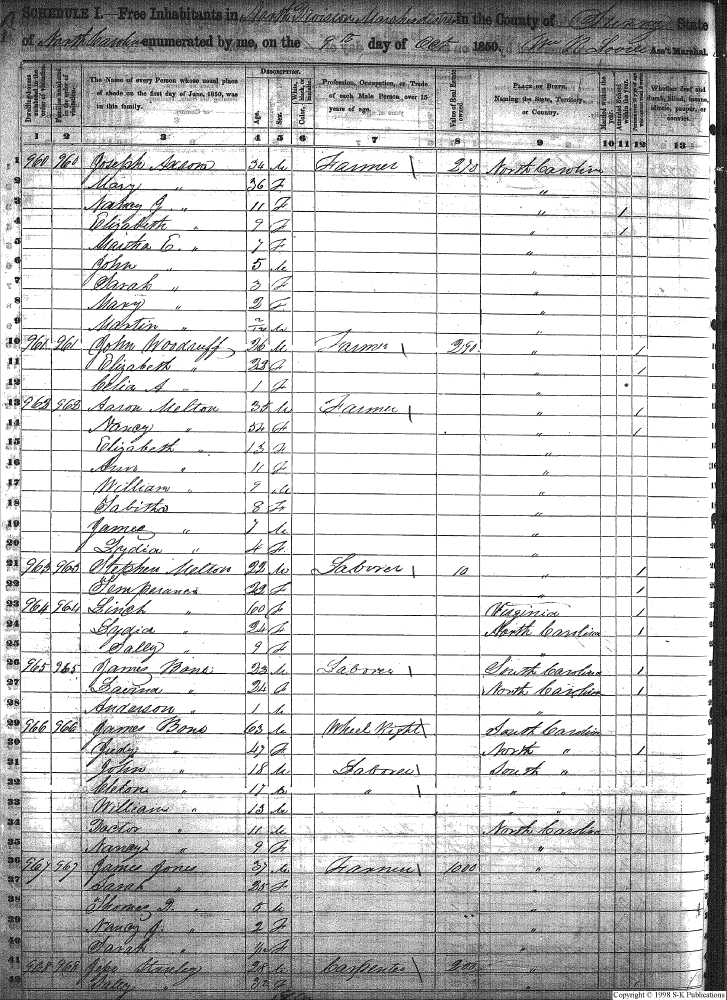 SCHEDULE I.—Free Inhabitants in North Division in the County of Surry State
of North Carolina enumerated by me, on the 9th day of Oct 1850. Wm R Lovill Ass't Marshal.
DESCRIPTION.
The Name of every Person whose usual place of abode on the first day of June, 1850, was in this family.
Age.
Sex.
Profession, Occupation, or Trade of each Male Person over 15 years of age.
Value of Real Estate owned.
PLACE OF BIRTH. Naming the State, Territory, or Country.
Whether deaf and dumb, blind, insane, idiotic, pauper, or convict.
1 2 3 4 5 6 7 8 9 10 11 12 13
1 960 960 Joseph 34 M Farmer North Carolina
2 Mary " 36 F "
3 Nancy J. " 11 F " 1
4 Elizabeth " 9 F " 1
5 Martha E. " 7 F "
6 John " 5 M "
7 Sarah " 3 F "
8 Mary " 2 F "
9 Martin " 2/12 M "
10 961 961 John Woodruff 26 M Farmer 290 " 1
11 Elizabeth " 23 F " 1
12 Celia A " 1 F "
13 962 962 Aaron Melton 35 M Farmer " 1
14 Nancy " 34 F " 1
15 Elizabeth " 13 F "
16 Ann " 11 F "
17 William " 9 M "
18 Tabitha 8 F "
19 James " 7 M "
20 Lydia " 4 F "
21 963 963 Stephen Melton 22 M Laborer 10 " 1
22 Temperance 22 F " 1
23 964 964 " 60 F Virginia 1
24 Lydia " 24 F North Carolina 1
25 Sally " 9 F "
26 965 965 James 23 M Laborer South Carolina 1
27 Lavina " 24 North Carolina 1
28 Anderson " 1 M "
29 966 966 James 63 M Wheel Wright South Carolina
30 Judy " 47 F North " 1
31 John " 18 M Laborer South "
32 " 17 M " " "
33 William " 13 M " "
34 Doctor " 11 M North Carolina
35 Nancy " 9 F "
36 967 967 James Jones 37 M Farmer 1000 "
37 Sarah " 25 F "
38 Thomas " 5 M "
39 Nancy J. " 2 F "
40 Sarah " F "
41 968 968 Stanley 28 M Carpenter 200 "
42 Sally " F "
Copyright © 1998 S-K Publications